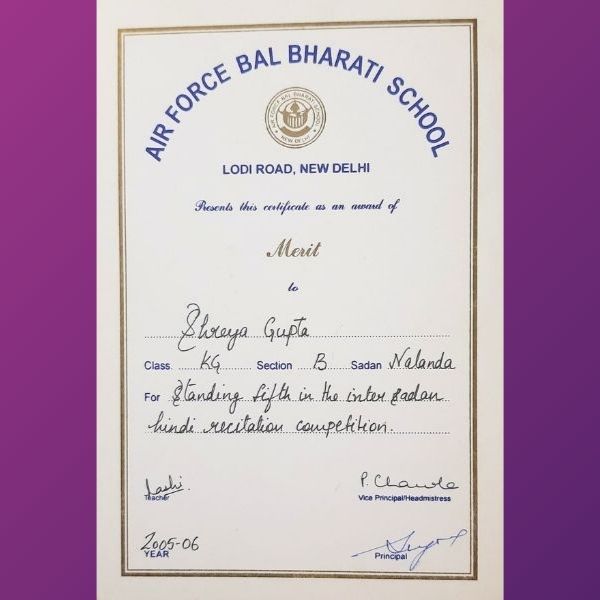 AIR FORCE BAL BHARATI SCHOOL
AIR FORCE BAL BHARATI SCHOOL
NEW DELHI
LODI ROAD, NEW DELHI
Presents this certificate as an award of
Merit
to
Shreya Gupta
Class KG Section B Sadan Nalanda
For Standing fifth in the inter sadan
hindi recitation competition.
P. Chawla
Teacher Vice Principal/Headmistress
2005-06
YEAR Principal